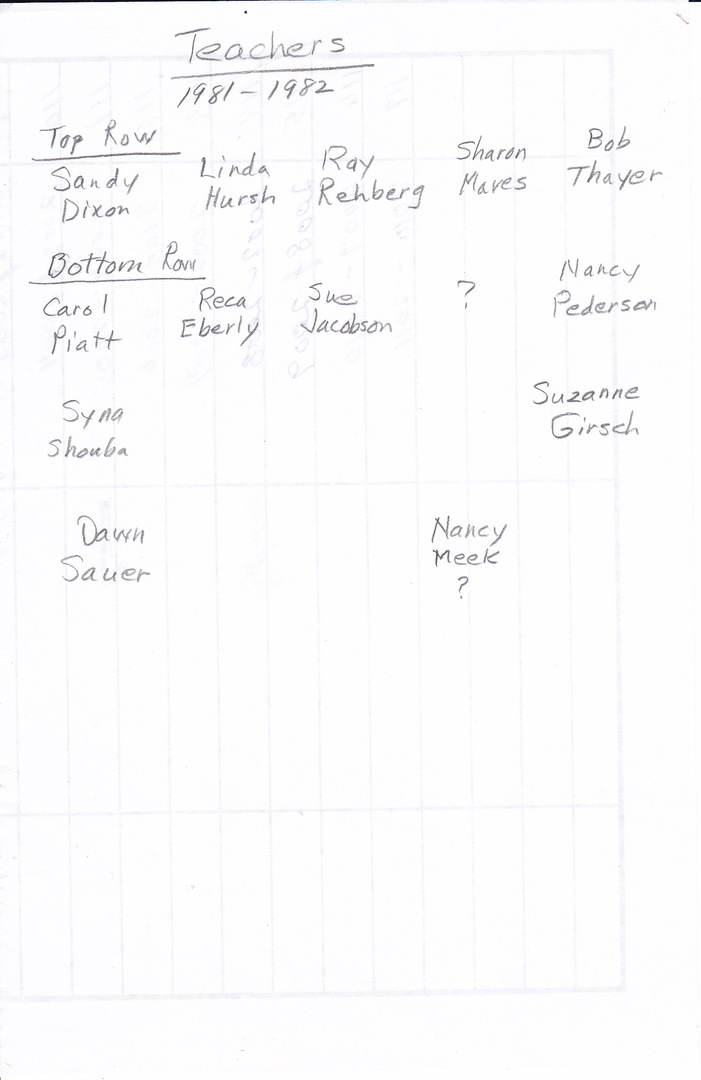 Teachers
1981 - 1982
Top Row
Sandy Dixon
Linda Hursh
Ray Rehberg
Sharon Maves
Bob Thayer
Bottom Row
Carol Piatt
Reca Eberly
Sue Jacobson
?
Nancy Pederson
Syna Shouba
Suzanne Girsch
Dawn Sauer
Nancy Meek ?